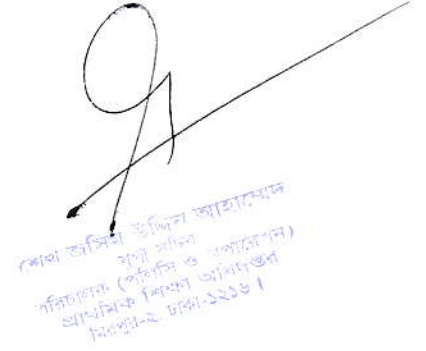 শেখ জসিম উদ্দিন আহাম্মেদ
যুগ্ম সচিব
পরিচালক (পলিসি ও অপারেশন)
প্রাথমিক শিক্ষা অধিদপ্তর
মিরপুর-২ ঢাকা-১২১৬।